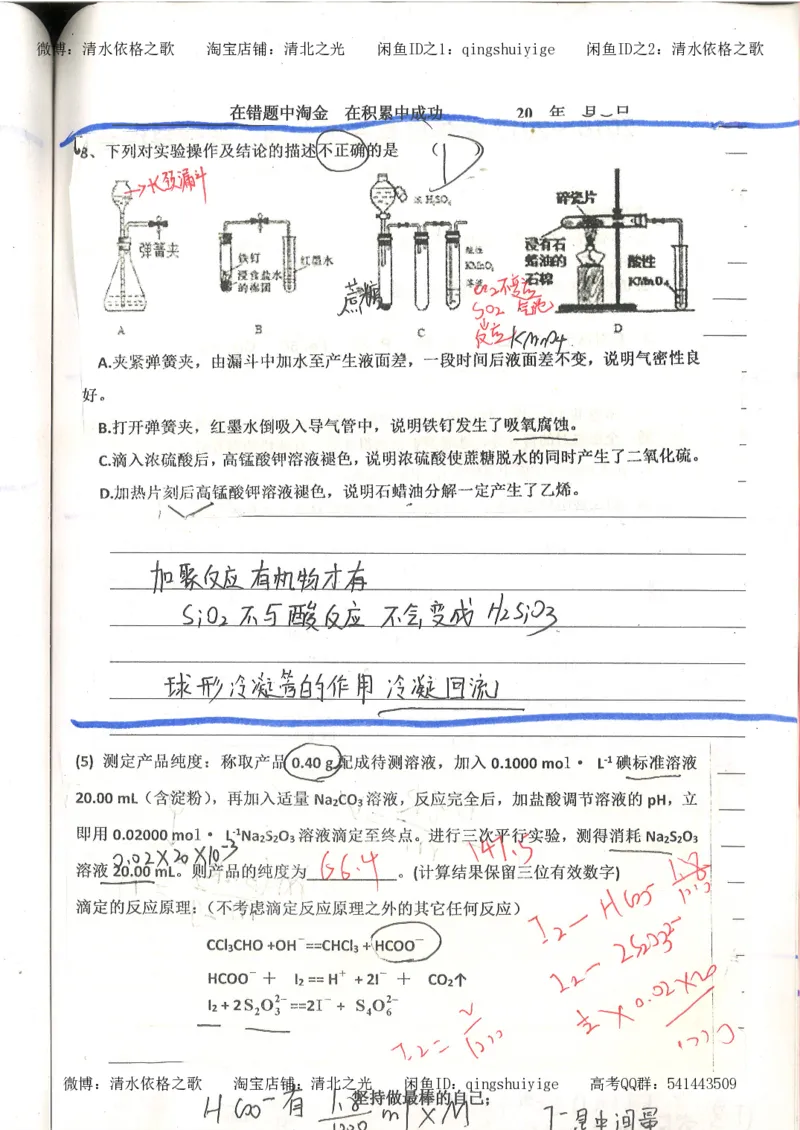 微博：清水依格之歌 淘宝店铺：清北之光 闲鱼ID之1：qingshuiyige 闲鱼ID之2：清水依格之歌
在错题中淘金 在积累中成功 20 年 月 日
8、下列对实验操作及结论的描述不正确的是 （D）
→长颈漏斗
弹簧夹
A
铁钉
浸食盐水
的棉团
红墨水
B
浓H₂SO₄
酸性
KMnO₄
蔗糖
CO₂不变
SO₂
反应KMnO₄
C
碎瓷片
浸有石
蜡油的
石棉
酸性
KMnO₄
D
A.夹紧弹簧夹，由漏斗中加水至产生液面差，一段时间后液面差不变，说明气密性良
好。
B.打开弹簧夹，红墨水倒吸入导气管中，说明铁钉发生了吸氧腐蚀。
C.滴入浓硫酸后，高锰酸钾溶液褪色，说明浓硫酸使蔗糖脱水的同时产生了二氧化硫。
D.加热片刻后高锰酸钾溶液褪色，说明石蜡油分解一定产生了乙烯。
加聚反应有机物才有
SiO₂不与酸反应 不会变成 H₂SiO₃
球形冷凝管的作用 冷凝回流
(5) 测定产品纯度：称取产品 0.40 g 配成待测溶液，加入 0.1000 mol· L⁻¹ 碘标准溶液
20.00 mL（含淀粉），再加入适量 Na₂CO₃ 溶液，反应完全后，加盐酸调节溶液的 pH，立
即用 0.02000 mol· L⁻¹Na₂S₂O₃ 溶液滴定至终点。进行三次平行实验，测得消耗 Na₂S₂O₃
0.02×20×10⁻³
147.5
溶液 20.00 mL。则产品的纯度为 66.4 。(计算结果保留三位有效数字)
滴定的反应原理：（不考虑滴定反应原理之外的其它任何反应）
I₂—HCOO⁻
CCl₃CHO +OH⁻==CHCl₃ + HCOO⁻
I₂—2S₂O₃²⁻
HCOO⁻ ＋ I₂ == H⁺ + 2I⁻ ＋ CO₂↑
½×0.02×20
I₂ + 2 S₂O₃²⁻ ==2I⁻ + S₄O₆²⁻
微博：清水依格之歌 淘宝店铺：清北之光 闲鱼ID：qingshuiyige 高考QQ群：541443509
坚持做最棒的自己；
HCOO⁻有